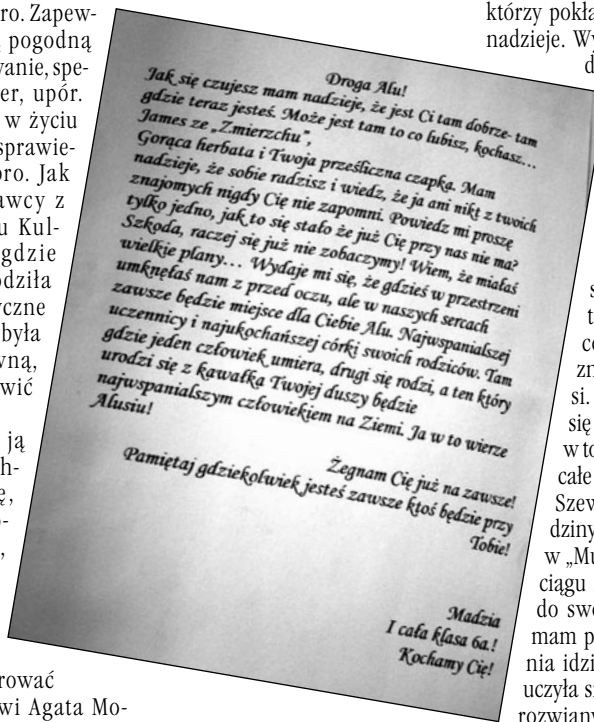 ro. Zapew-
pogodną
wanie, spe-
er, upór.
w życiu
sprawie-
oro. Jak
awcy z
u Kul-
gdzie
odziła
yczne
była
wną,
wić
ją
h-
ę,
o-
,
rować
wi Agata Mo-
Droga Alu!
Jak się czujesz mam nadzieje, że jest Ci tam dobrze- tam
gdzie teraz jesteś. Może jest tam to co lubisz, kochasz...
James ze „Zmierzchu",
Gorąca herbata i Twoja prześliczna czapka. Mam
nadzieje, że sobie radzisz i wiedz, że ja ani nikt z twoich
znajomych nigdy Cię nie zapomni. Powiedz mi proszę
tylko jedno, jak to się stało że już Cię przy nas nie ma?
Szkoda, raczej się już nie zobaczymy! Wiem, że miałaś
wielkie plany... Wydaje mi się, że gdzieś w przestrzeni
umknęłaś nam z przed oczu, ale w naszych sercach
zawsze będzie miejsce dla Ciebie Alu. Najwspanialszej
uczennicy i najukochańszej córki swoich rodziców. Tam
gdzie jeden człowiek umiera, drugi się rodzi, a ten który
urodzi się z kawałka Twojej duszy będzie
najwspanialszym człowiekiem na Ziemi. Ja w to wierze
Alusiu!
Żegnam Cię już na zawsze!
Pamiętaj gdziekolwiek jesteś zawsze ktoś będzie przy
Tobie!
Madzia
I cała klasa 6a.!
Kochamy Cię!
którzy pokła
nadzieje. Wy
d
s
t
co
zn
si.
się
w to
całe
Szew
dziny
w „Mu
ciągu
do swo
mam p
nia idzi
uczyła s
rozwiany